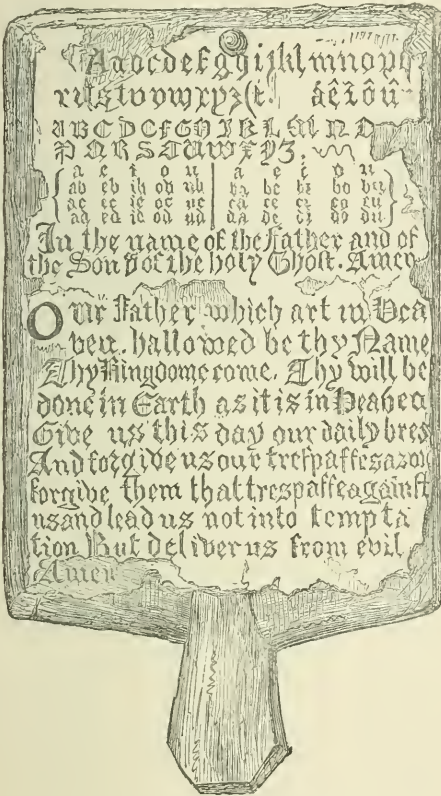 Aabcdefghijklmnopq
rſstuvwxyz&c. áêîôû
ABCDEFGHIKLMNO
PQRSTUWXYZ.
a e i o u a e i o u
ab eb ib ob ub ba be bi bo bu
ac ec ic oc uc ca ce ci co cu
ad ed id od ud da de di do du
In the name of the Father and of
the Son & of the holy Ghost. Amen
Our Father which art in Hea
ven, hallowed be thy Name
Thy Kingdome come. Thy will be
done in Earth as it is in Heaven
Give us this day our daily bred
And forgive us our treſpaſſes as we
forgive them that treſpaſſe againſt
us and lead us not into tempta
tion But deliver us from evil
Amen